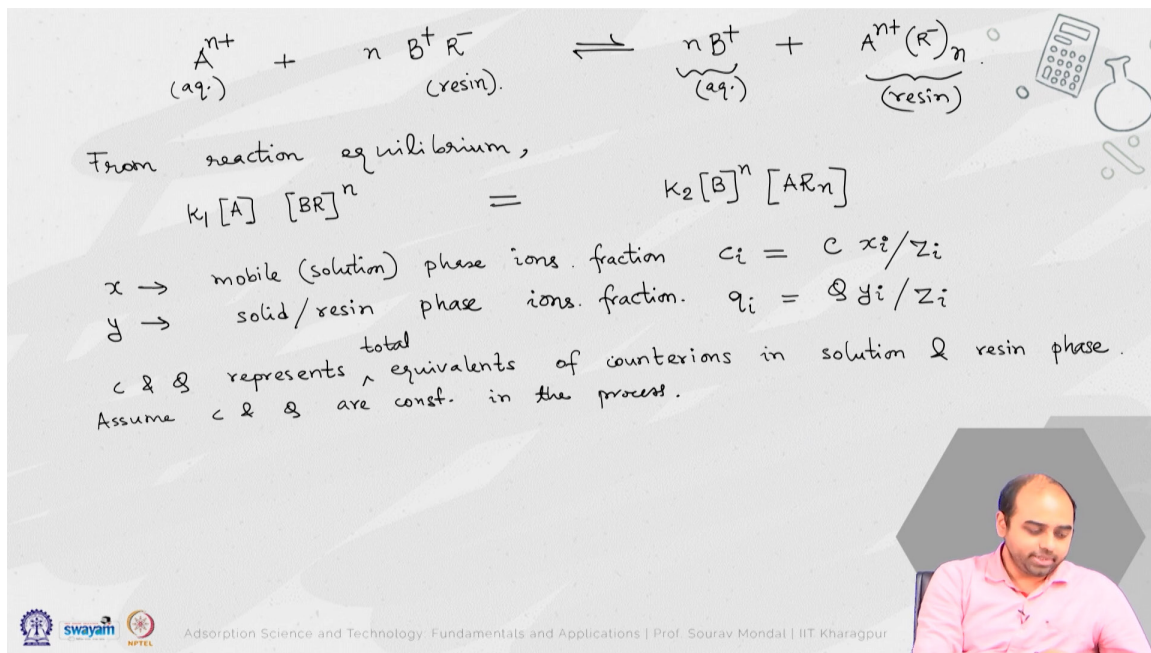 Aⁿ⁺ + n B⁺ R⁻ ⇌ n B⁺ + Aⁿ⁺ (R⁻)ₙ
(aq.) (resin). (aq.) (resin)
From reaction equilibrium,
k₁ [A] [BR]ⁿ = k₂ [B]ⁿ [ARₙ]
x → mobile (solution) phase ions. fraction cᵢ = c xᵢ/zᵢ
y → solid/resin phase ions. fraction. qᵢ = Q yᵢ/zᵢ
c & Q represents total equivalents of counterions in solution & resin phase.
Assume c & Q are const. in the process.
swayam NPTEL Adsorption Science and Technology: Fundamentals and Applications | Prof. Sourav Mondal | IIT Kharagpur